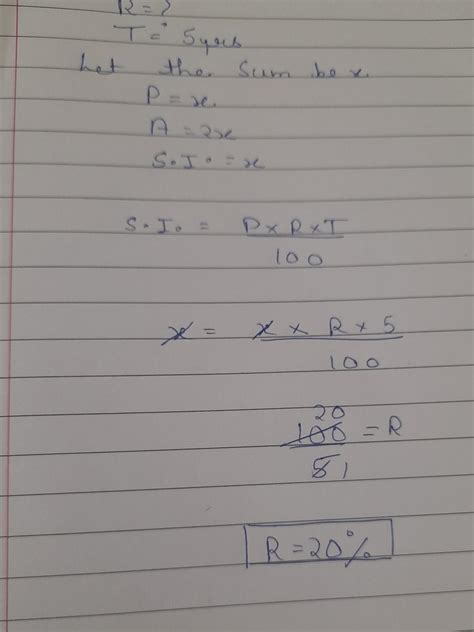 R = ?
T = 5 yrs
Let the Sum be x.
P = x.
A = 2x
S.I. = x
S.I. = P x R x T
100
x = x x R x 5
100
20
100 = R
5 1
R = 20%